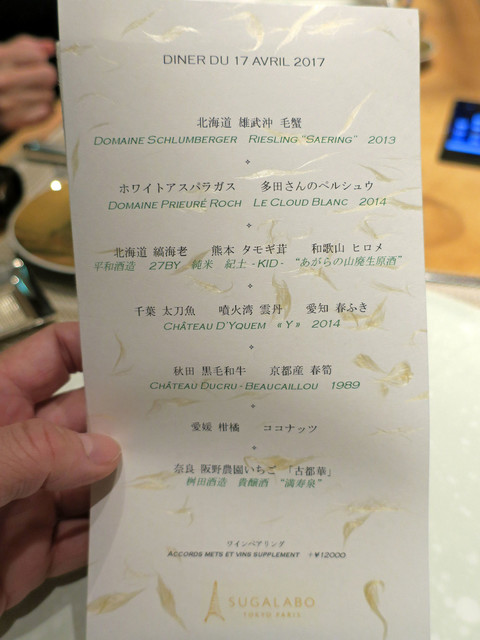 DINER DU 17 AVRIL 2017
北海道 雄武沖 毛蟹
DOMAINE SCHLUMBERGER RIESLING "SAERING" 2013
ホワイトアスパラガス 多田さんのペルシュウ
DOMAINE PRIEURÉ ROCH LE CLOUD BLANC 2014
北海道 縞海老 熊本 タモギ茸 和歌山 ヒロメ
平和酒造 27BY 純米 紀土 -KID- "あがらの山廃生原酒"
千葉 太刀魚 噴火湾 雲丹 愛知 春ふき
CHÂTEAU D'YQUEM «Y» 2014
秋田 黒毛和牛 京都産 春筍
CHÂTEAU DUCRU-BEAUCAILLOU 1989
愛媛 柑橘 ココナッツ
奈良 阪野農園いちご 「古都華」
桝田酒造 貴醸酒 "満寿泉"
ワインペアリング
ACCORDS METS ET VINS SUPPLEMENT +¥12000
SUGALABO
TOKYO PARIS